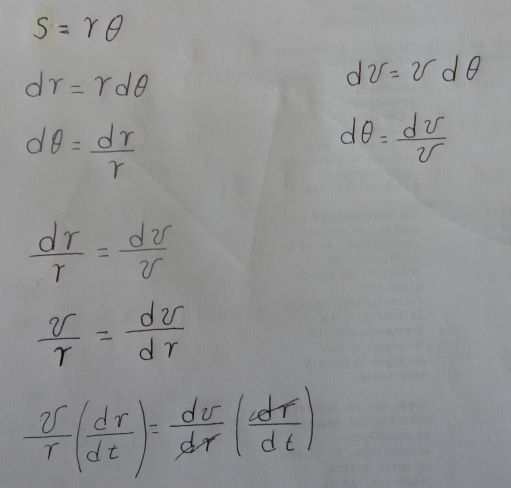 S = r θ
dr = r dθ
dθ = dr/r
dv = v dθ
dθ = dv/v
dr/r = dv/v
v/r = dv/dr
v/r (dr/dt) = dv/dr (dr/dt)